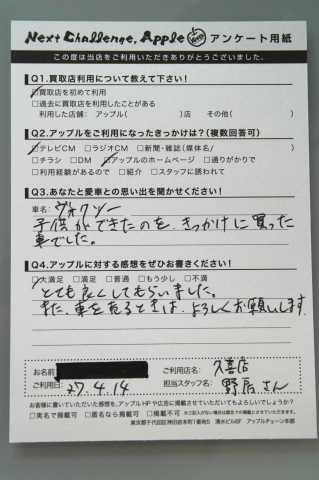 Next Challenge, Apple アンケート用紙
この度は当店をご利用いただきありがとうございました。
Q1.買取店利用について教えて下さい!
☑買取店を初めて利用
□過去に買取店を利用したことがある
利用した店舗: アップル( )店 その他( )
Q2.アップルをご利用になったきっかけは?(複数回答可)
☑テレビCM □ラジオCM □新聞・雑誌(媒体名/ )
□チラシ □DM ☑アップルのホームページ □通りがかりで
□利用経験があるので □紹介 □スタッフに誘われて
Q3.あなたと愛車との思い出を聞かせください!
車名: ヴォクシー
子供ができたのを、きっかけに買った
車でした。
Q4.アップルに対する感想をぜひお書きください!
☑大満足 □満足 □普通 □もう少し □不満
とても良くしてもらいました。
また、車を売るときは、よろしくお願いします
お名前 ご利用店名: 久喜店
ご利用日: 27.4.14 担当スタッフ名: 野店さん
お客様に書いていただいた感想を、アップルHPや広告に掲載させていただいてもよろしいでしょうか?
□実名で掲載可 □匿名なら掲載可 □掲載不可 ※ご記入がない場合は匿名での掲載とさせていただきます。
東京都千代田区神田岩本町1番地5 清水ビル6F アップルチェーン本部